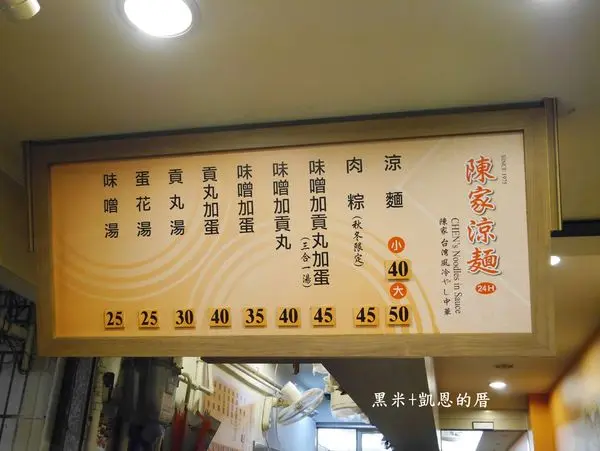 SINCE 1975
陳家涼麵
24H
CHEN's Noodles in Sauce
陳家 台湾風冷やし中華
涼麵
小
40
大
50
肉粽(秋冬限定)
45
味噌加貢丸加蛋(三合一湯)
45
味噌加貢丸
40
味噌加蛋
35
貢丸加蛋
40
貢丸湯
30
蛋花湯
25
味噌湯
25
黑米+凱恩的厝